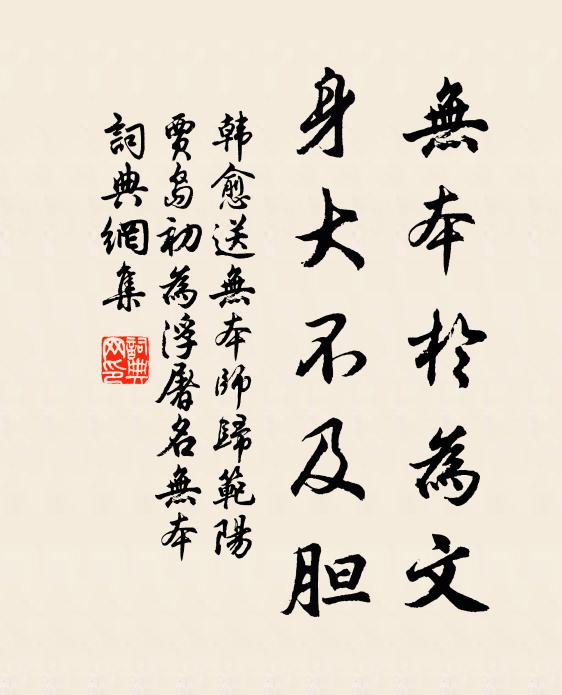 無本於為文
身大不及胆
韓愈送無本師歸範陽
賈島初為浮屠名無本
詞典網集
詞典网印